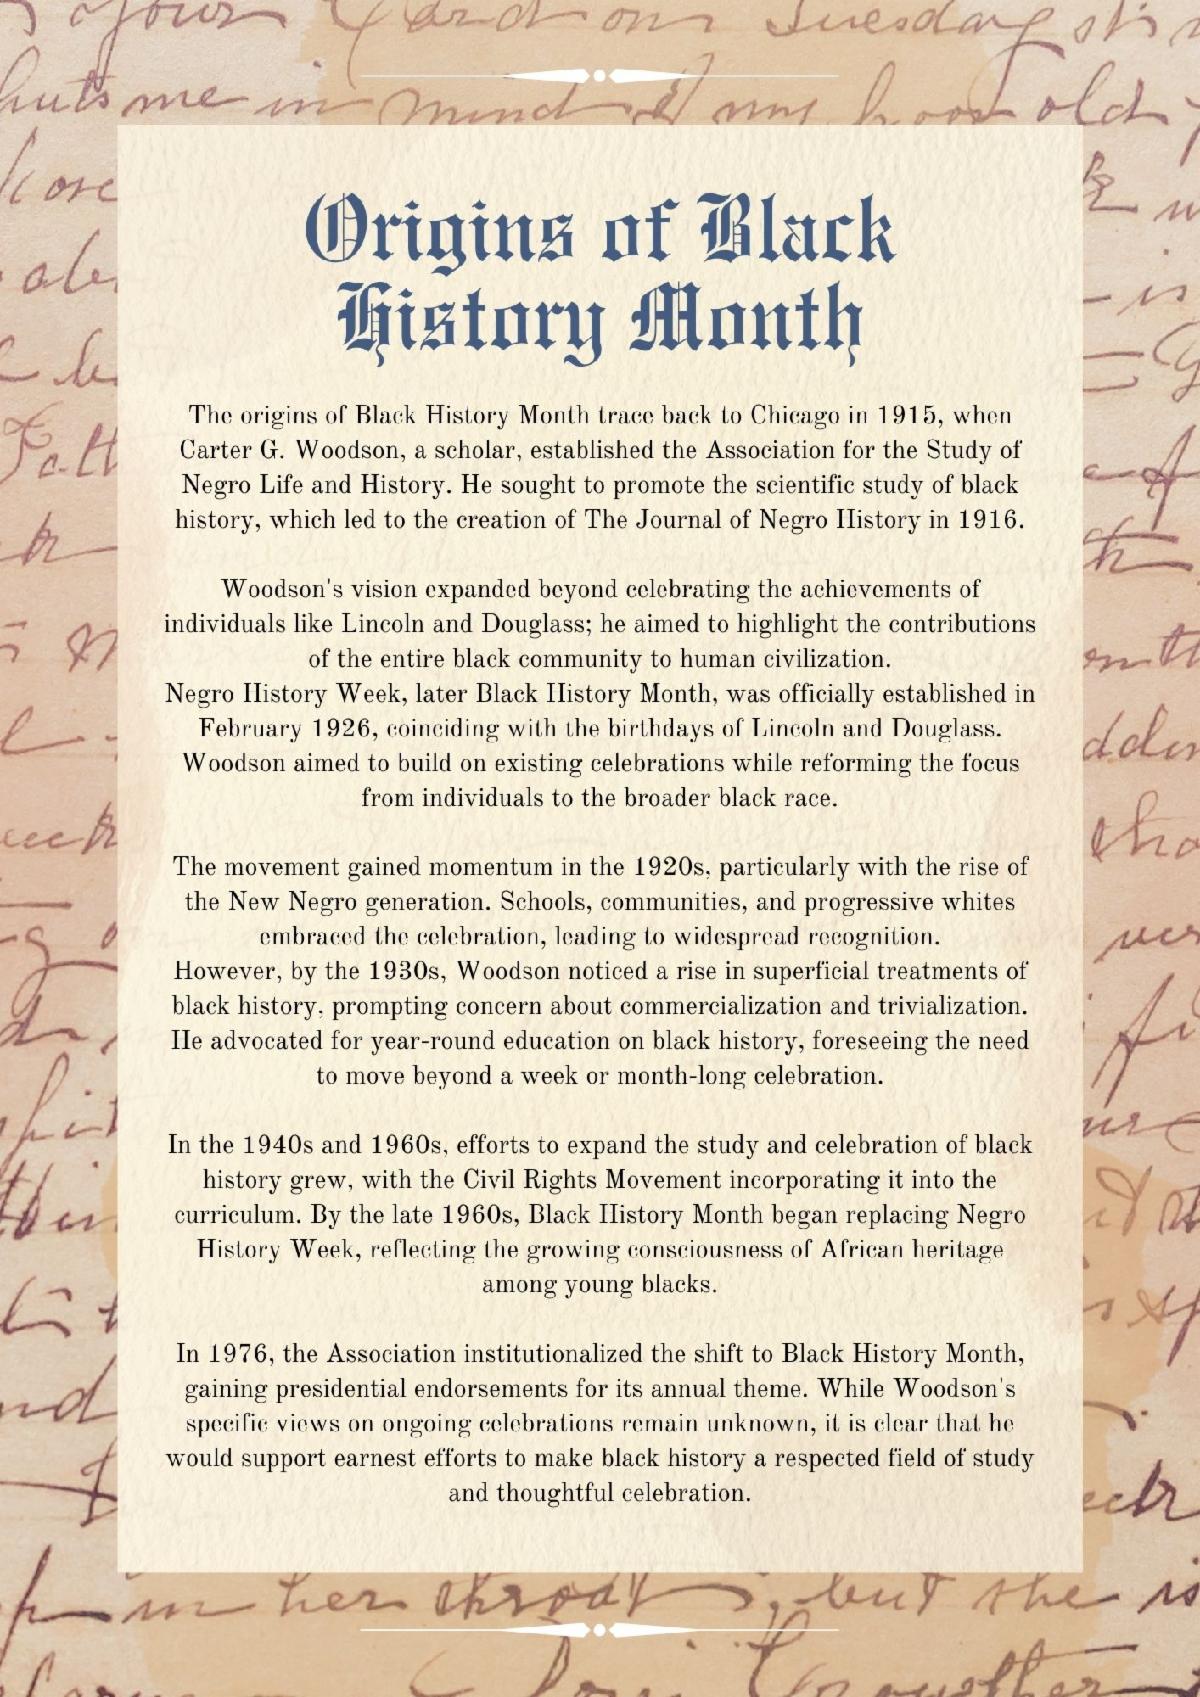 Origins of Black
History Month
The origins of Black History Month trace back to Chicago in 1915, when
Carter G. Woodson, a scholar, established the Association for the Study of
Negro Life and History. He sought to promote the scientific study of black
history, which led to the creation of The Journal of Negro History in 1916.
Woodson's vision expanded beyond celebrating the achievements of
individuals like Lincoln and Douglass; he aimed to highlight the contributions
of the entire black community to human civilization.
Negro History Week, later Black History Month, was officially established in
February 1926, coinciding with the birthdays of Lincoln and Douglass.
Woodson aimed to build on existing celebrations while reforming the focus
from individuals to the broader black race.
The movement gained momentum in the 1920s, particularly with the rise of
the New Negro generation. Schools, communities, and progressive whites
embraced the celebration, leading to widespread recognition.
However, by the 1930s, Woodson noticed a rise in superficial treatments of
black history, prompting concern about commercialization and trivialization.
He advocated for year-round education on black history, foreseeing the need
to move beyond a week or month-long celebration.
In the 1940s and 1960s, efforts to expand the study and celebration of black
history grew, with the Civil Rights Movement incorporating it into the
curriculum. By the late 1960s, Black History Month began replacing Negro
History Week, reflecting the growing consciousness of African heritage
among young blacks.
In 1976, the Association institutionalized the shift to Black History Month,
gaining presidential endorsements for its annual theme. While Woodson's
specific views on ongoing celebrations remain unknown, it is clear that he
would support earnest efforts to make black history a respected field of study
and thoughtful celebration.
in her throat, but she is